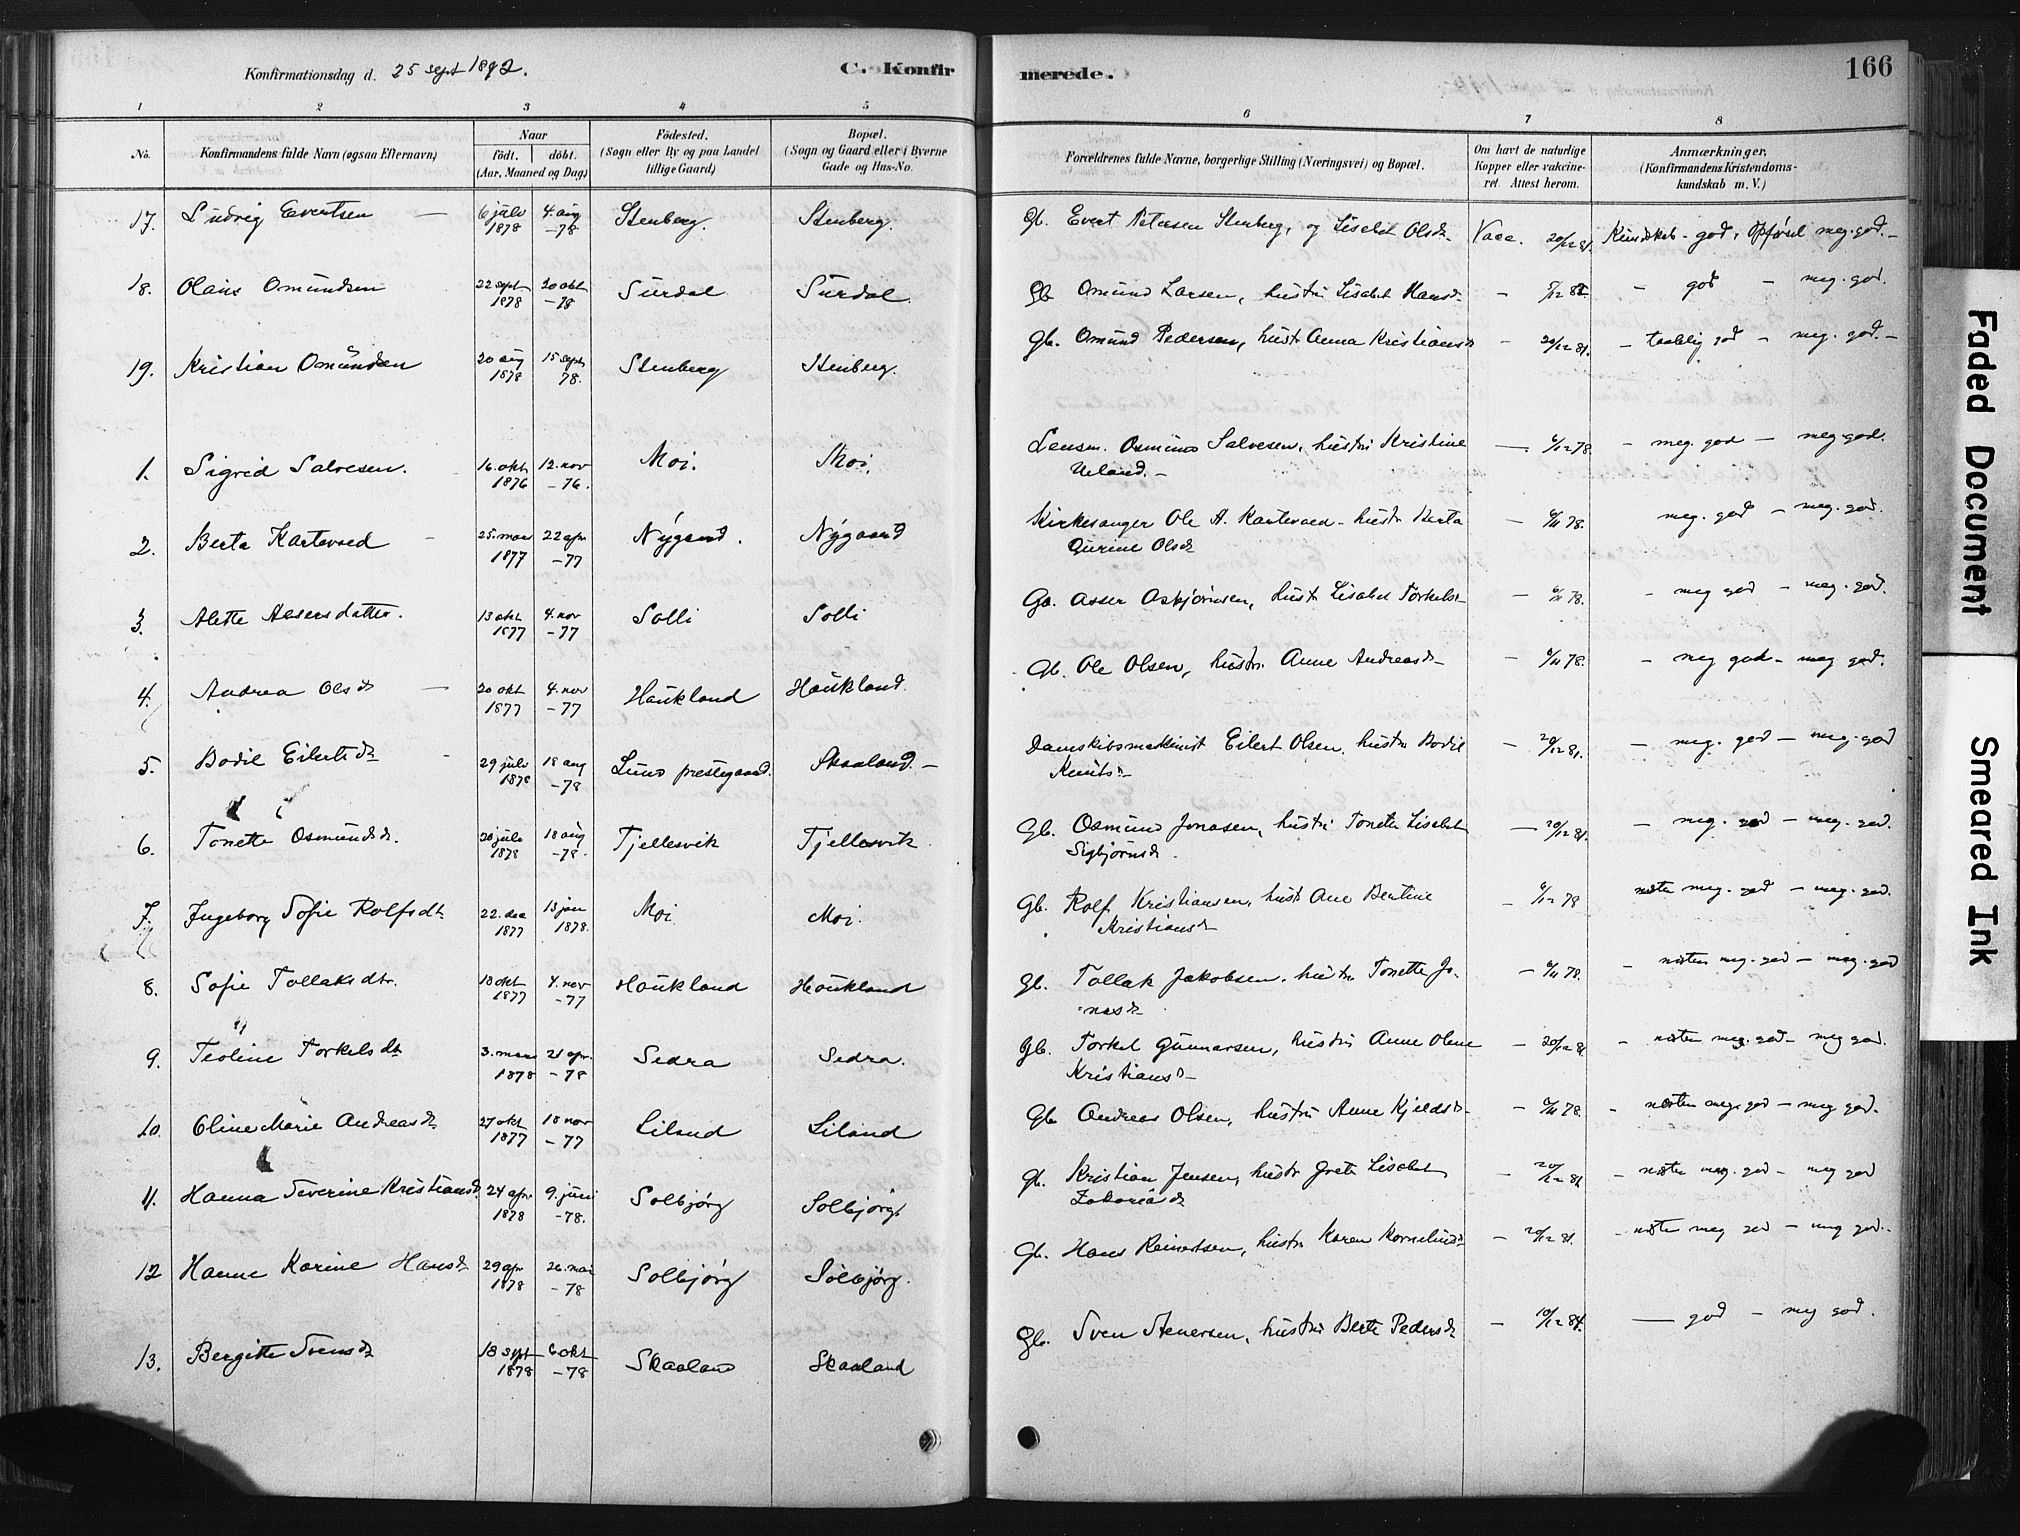 Konfirmationsdag d. 25 sept 1892.
C. Konfirmerede.
166
1 2 3 4 5 6 7 8
No. Konfirmandens fulde Navn (ogsaa Efternavn) Naar født. døbt. (Aar, Maaned og Dag) Fødested. (Sogn eller By og paa Landet tillige Gaard) Bopæl. (Sogn og Gaard eller i Byerne Gade og Hus-No. Forældrenes fulde Navne, borgerlige Stilling (Næringsvei) og Bopæl. Om havt de naturlige Kopper eller vakcineret. Attest herom. Anmærkninger, (Konfirmandens Kristendomskundskab m. V.)
17. Ludvig Evertsen 6 juli 1878 4. aug -78 Stenberg. Stenberg. Gb. Evert Petersen Stenberg, og Lisabet Olsdr. Vacc. 20/12 81. Kundskab - god, Opførsel meg. god. -
18. Olaus Omundsen 22 sept 1878 20 okt -78 Surdal Surdal. Gb Omund Larsen, hustru Lisabet Hansdr - god - meg. god.
19. Kristian Omundsen 20 aug 1878 15 sept 78. Stenberg Stenberg. Gb. Omund Pedersen, hustr Anna Kristiansdr - 20/12 81. - taalelig god - meg. god. -
1. Sigrid Salvesen. 16. okt 1876 12. nov -76. Moi. Moi. Lensm. Osmund Salvesen, hustru Kristine Ueland. - 6/12 78. - meg. god - meg. god.
2. Berta Kartevoed 25. mars 1877 22 apr -77 Nygaard. Nygaard Kirkesanger Ole A. Kartevoed - hustr Berta Gurine Olsdr - 6/11 78. meg. god - meg. god.
3. Alette Assersdatter. 13 okt 1877 4. nov -77 Solli Solli Gb. Asser Asbjørnsen, hustr Lisabet Torkelsdr - 6/11 78. - meg god - meg. god.
4. Andrea Olsdr 20 okt 1877 4. nov -77 Haukland Haukland. Gb. Ole Olsen, hustru Anne Andreasdr - 6/11 78. - meg god - meg god.
5. Bodil Eilertsdr 29 juli 1878 18 aug -78 Lund prestegaard. Skaaland. - Damskibsmaskinist Eilert Olsen, hustru Bodil Knutsdr - 20/12 81. - meg. god - meg. god
6. Tonette Osmundsdr. 20 juli 1878 18 aug -78. Tjellesvik Tjellesvik Gb. Osmund Jonasen, hustru Tonette Lisabet Sigbjørnsdr. - 20/12 81. - meg. god - meg. god.
7. Ingeborg Sofie Rolfsdtr 22. dec 1877 13 jan 1878. Moi Moi. Gb. Rolf Kristiansen, hustr Ane Bertine Kristiansdr - 6/12 78 næsten meg. god - meg. god.
8. Sofie Tollaksdtr. 13 okt 1877 4. nov -77 Haukland Haukland Gb. Tollak Jakobsen, hustru Tonette Jonasdr - 6/11 78. - næsten meg. god - meg. god
9. Teoline Torkelsdtr 3. mars 1878 21 apr. -78 Sedra Sedra. Gb. Torkel Gunnarsen, hustru Anne Olene Kristiansdr - 20/12 81 - næsten meg. god - meg god.
10. Oline Marie Andreasdr 27 okt 1877 18 nov -77 Liland Liland Gb. Andreas Olsen, hustru Anne Kjeldsdr - 6/11 78. - næsten meg. god - meg god.
11. Hanna Severine Kristiansdr 24 apr 1878 9. juni -78. Solbjørg Solbjørg. Gb. Kristian Jensen, hustr Grete Lisabet Zakariasdr - 20/12 81 - næsten meg. god - meg god
12 Hanne Karine Hansdr 29 apr 1878 26. mai -78 Solbjørg Solbjørg. Gb. Hans Reinertsen, hustru Karen Korneliusdr - 20/12 81. - næsten meg god - meg god.
13. Bergitte Svensdr 18 sept 1878 6 okt -78 Skaaland Skaaland Gb. Sven Stenersen, hustru Berte Pedersdr - 10/12 84. - god - meg god.
Faded Document
Smeared Ink